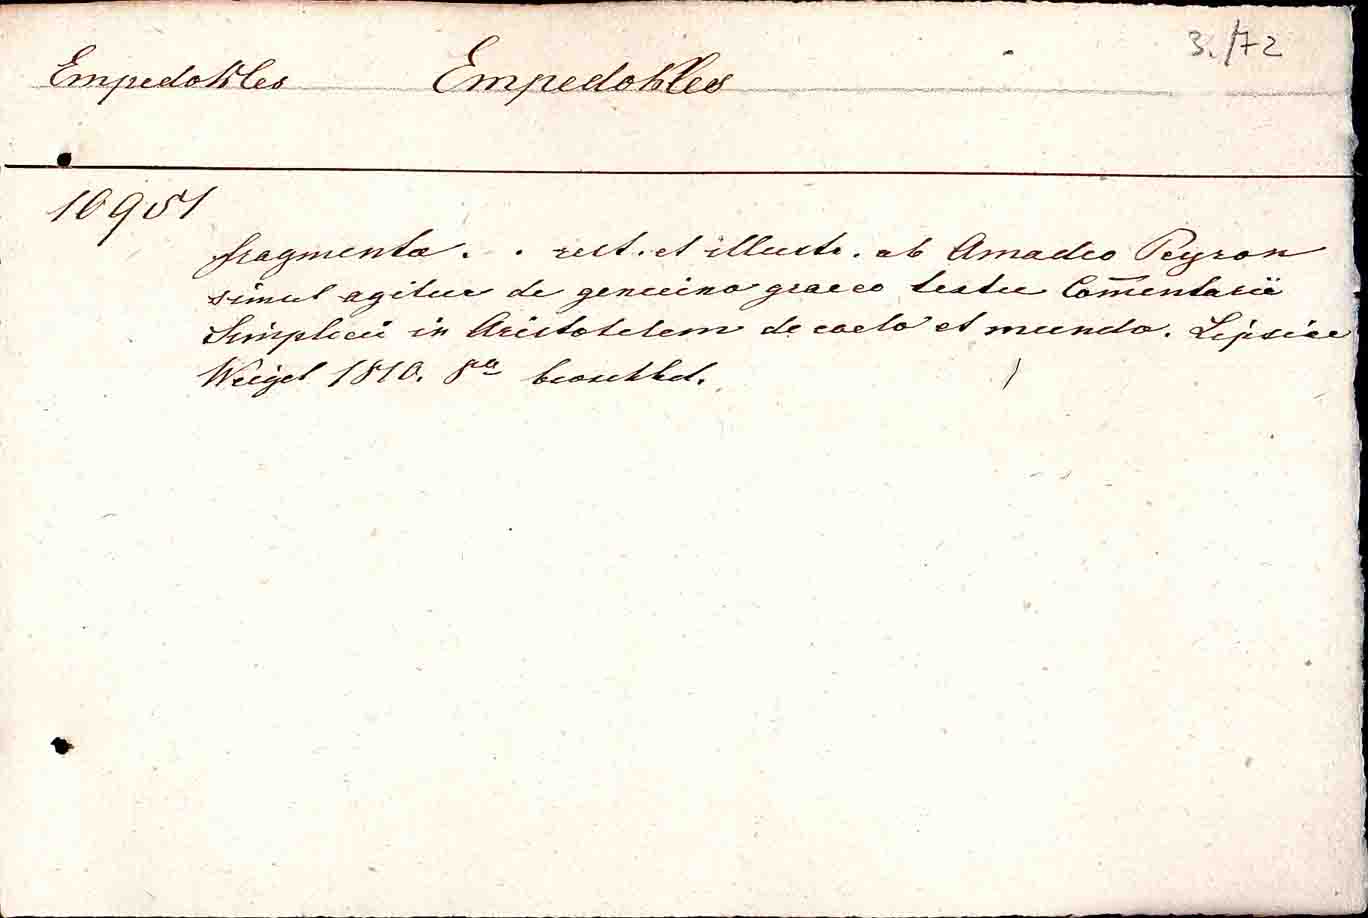 3./72
Empedokles Empedokles
10951
fragmenta . . rest. et illustr. ab Amadeo Peyron
simul agitur de genuino graeco textu Com̅entarii
Simplicii in Aristotelem de caelo et mundo. Lipsiae
Weigel 1810. 8º